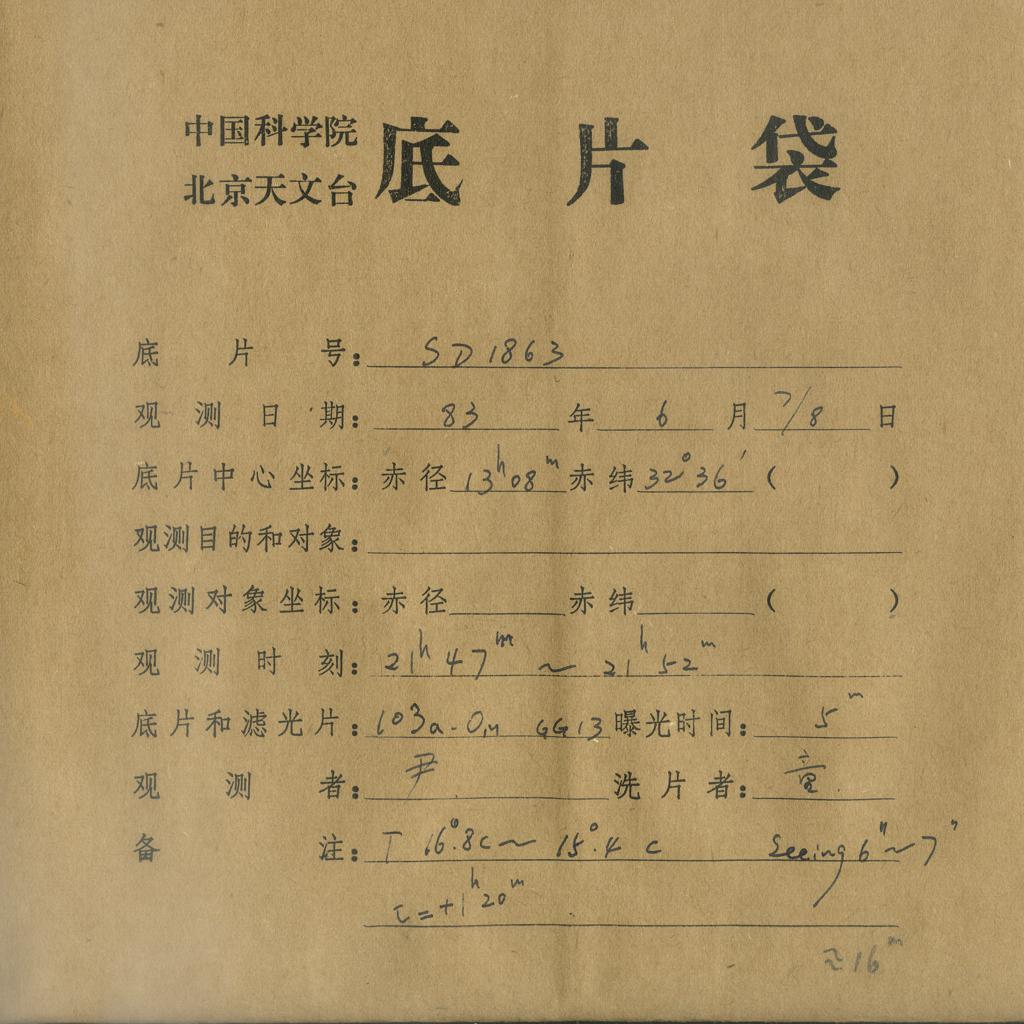 中国科学院
北京天文台
底片袋
底片号：SD1863
观测日期：83年6月7/8日
底片中心坐标：赤径13h08m赤纬32°36′（ ）
观测目的和对象：
观测对象坐标：赤径 赤纬 （ ）
观测时刻：21h47m～21h52m
底片和滤光片：103a-O,N GG13 曝光时间：5m
观测者：尹 洗片者：童
备注：T 16°.8c～15°.4c Seeing 6″～7″
t=+1h20m
≈16m